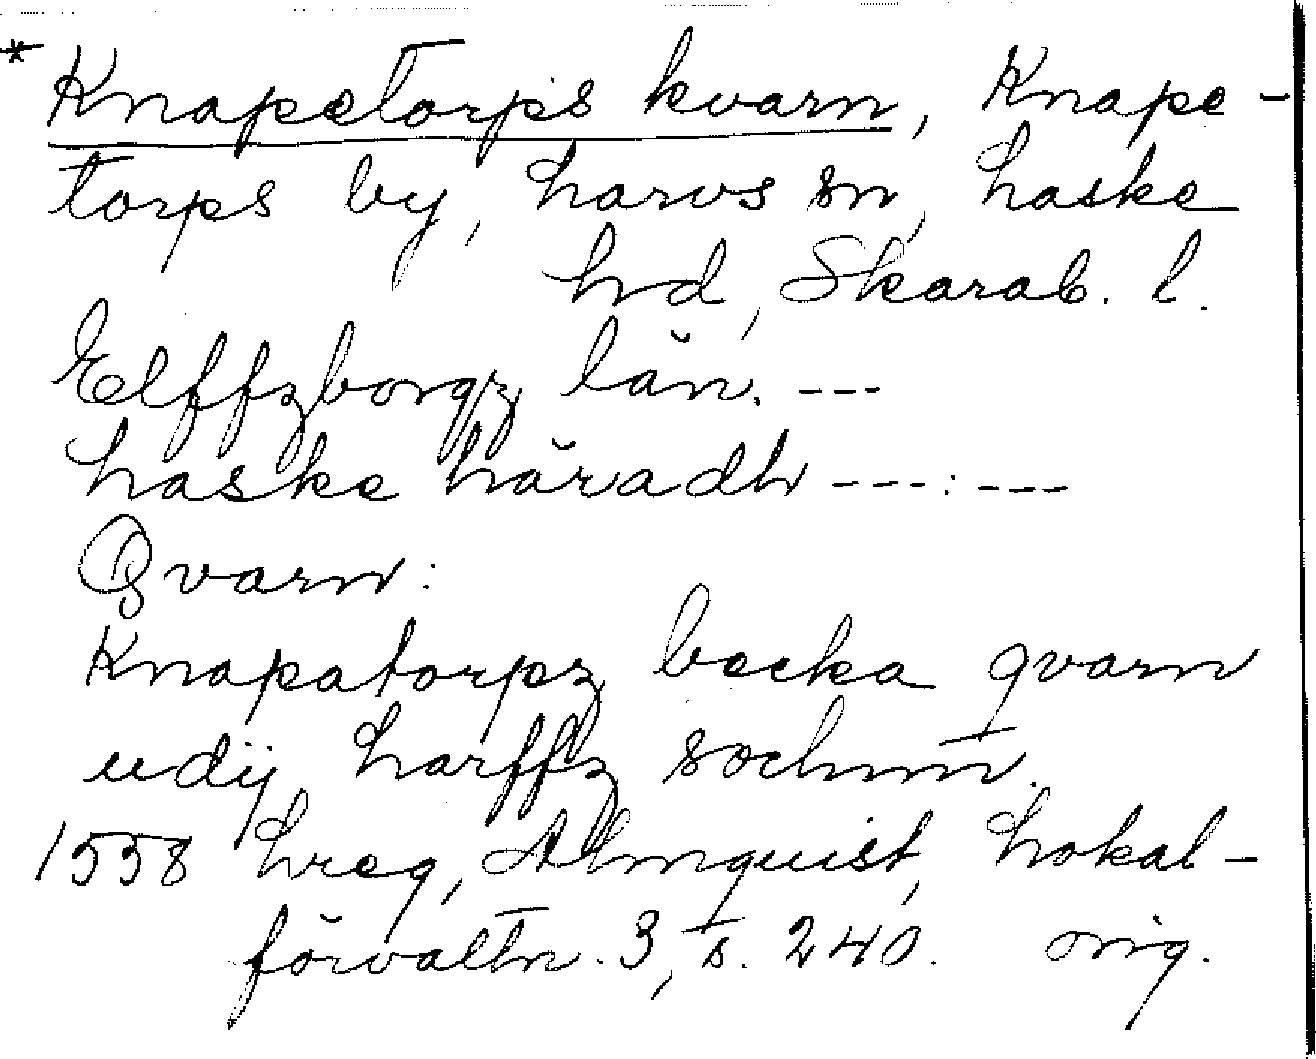 * Knapetorps kvarn, Knape-
torps by, Larvs sn, Laske
hd, Skarab. l.
Elffzborgz län. ---
Laske häradh ---:---
Qvarn:
Knapatorpz becka qvarn
udij Larffz sochnn.
1558 Lreg, Almquist, Lokal-
förvaltn. 3, s. 240. orig.